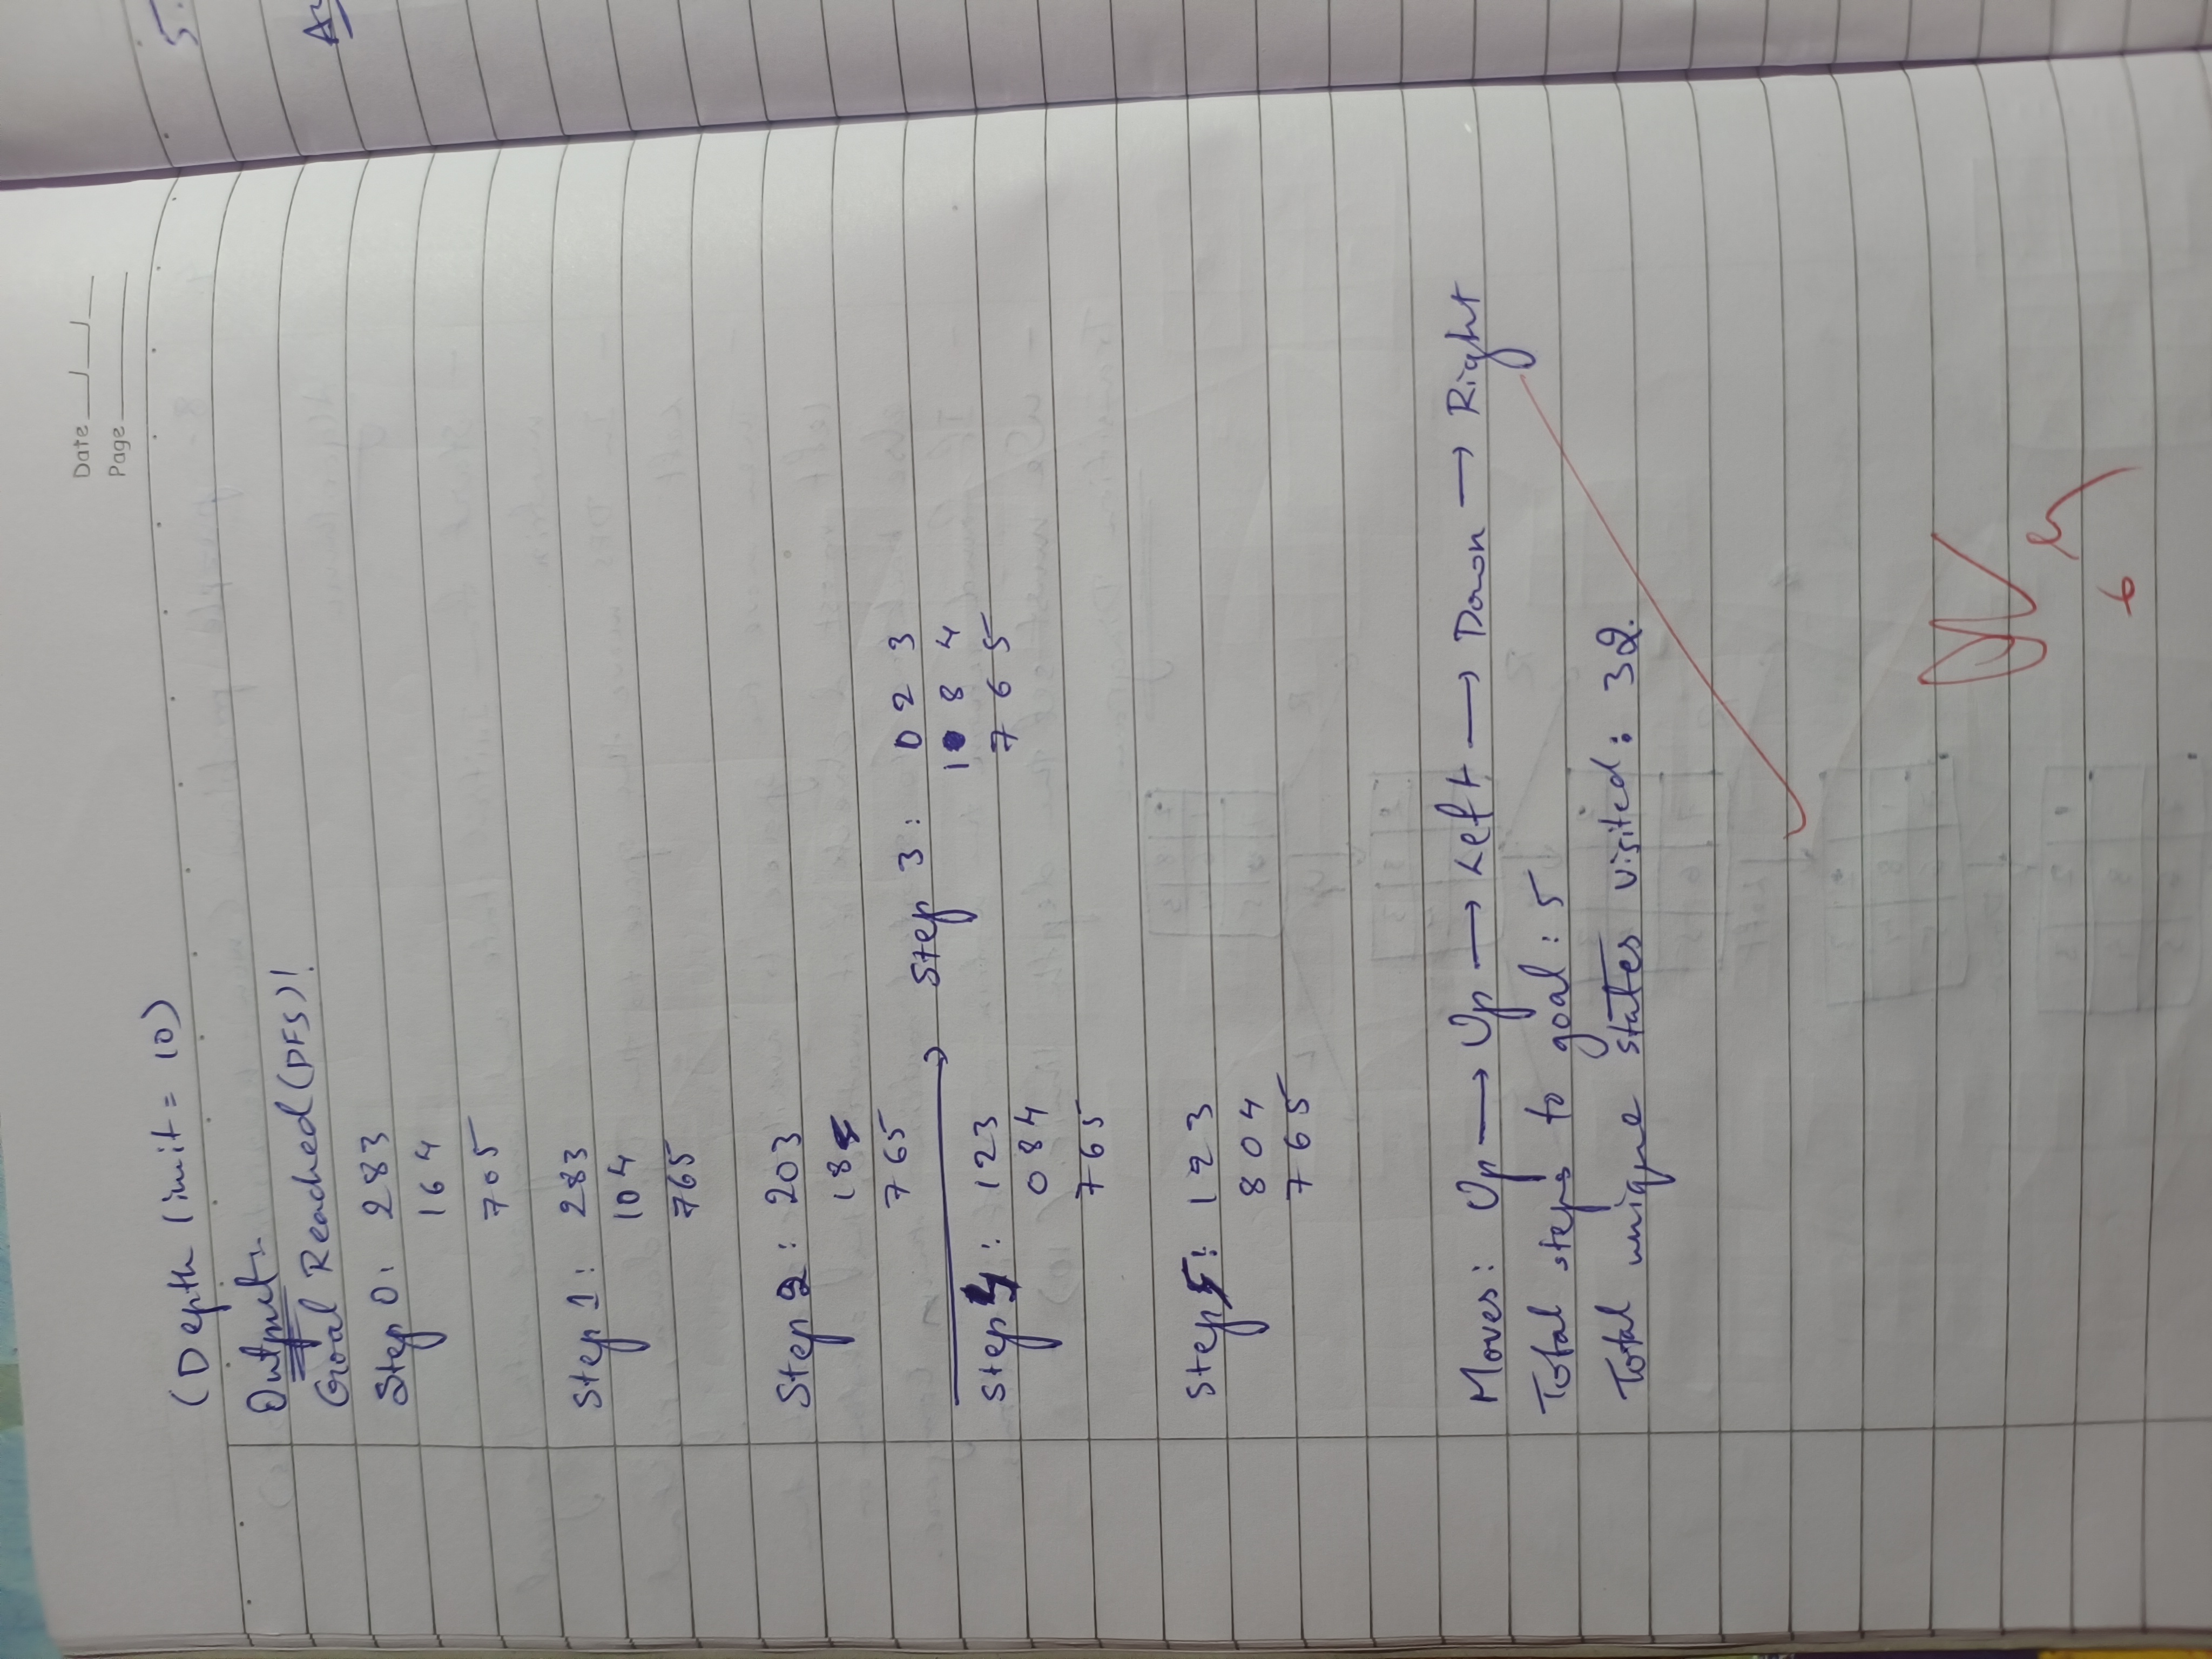 Date
Page
(Depth limit = 10)
Output:
Goal Reached (DFS)!
Step 0: 283
164
705
Step 1: 283
104
765
Step 2: 203
184
765
Step 3: 0 2 3
1 8 4
7 6 5
Step 4: 123
084
765
Step 5: 123
804
765
Moves: Up → Up → Left → Down → Right
Total steps to goal: 5
Total unique states visited: 32.
5.